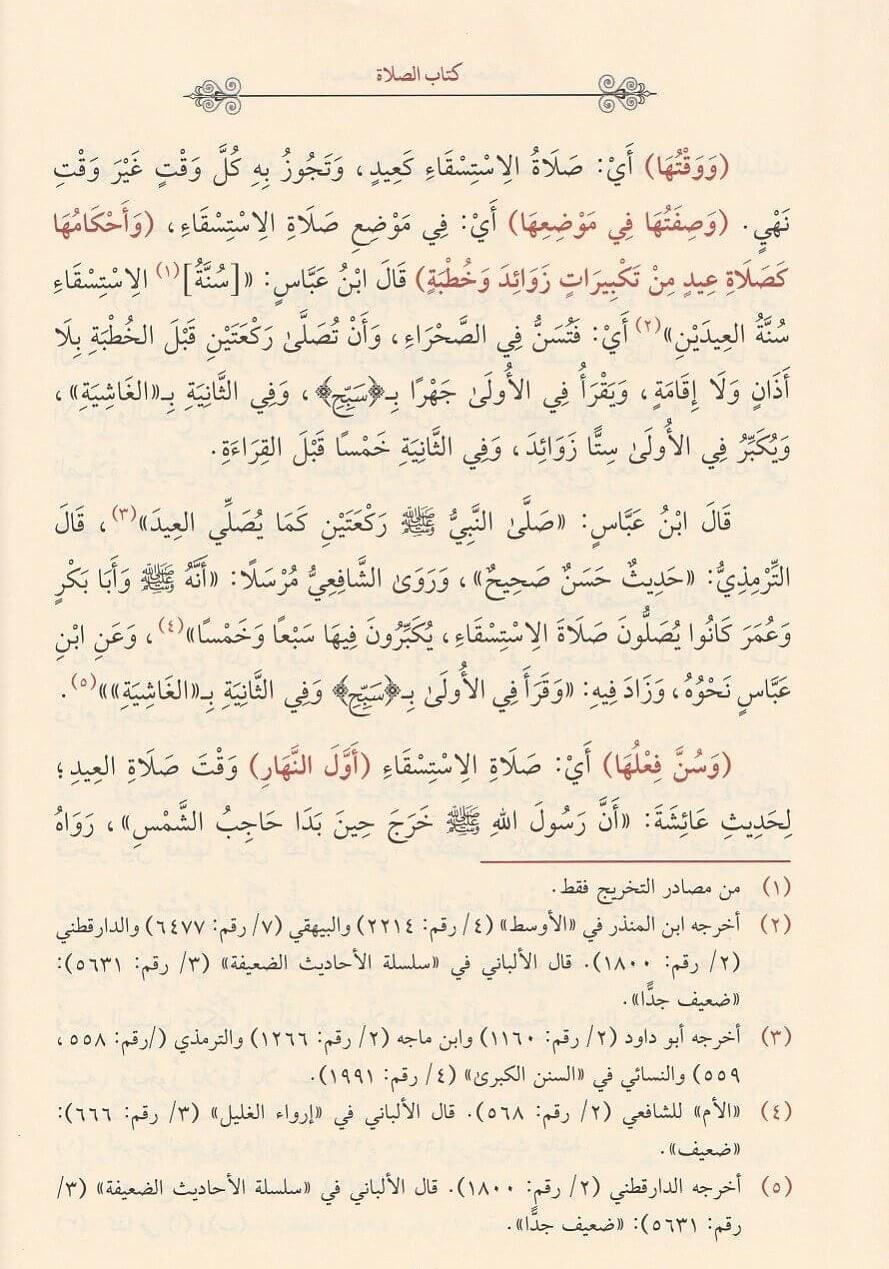 كتاب الصلاة
(وَوَقْتُهَا) أَيْ: صَلَاةُ الِاسْتِسْقَاءِ كَعِيدٍ، وَتَجُوزُ بِهِ كُلَّ وَقْتٍ غَيْرَ وَقْتِ
نَهْيٍ. (وَصِفَتُهَا فِي مَوْضِعِهَا) أَيْ: فِي مَوْضِعِ صَلَاةِ الِاسْتِسْقَاءِ، (وَأَحْكَامُهَا
كَصَلَاةِ عِيدٍ مِنْ تَكْبِيرَاتٍ زَوَائِدَ وَخُطْبَةٍ) قَالَ ابْنُ عَبَّاسٍ: «[سُنَّةُ](١) الِاسْتِسْقَاءِ
سُنَّةُ العِيدَيْنِ»(٢) أَيْ: فَتُسَنُّ فِي الصَّحْرَاءِ، وَأَنْ تُصَلَّىٰ رَكْعَتَيْنِ قَبْلَ الخُطْبَةِ بِلَا
أَذَانٍ وَلَا إِقَامَةٍ، وَيَقْرَأُ فِي الأُولَىٰ جَهْرًا بِـ﴿سَبِّحِ﴾، وَفِي الثَّانِيَةِ بِـ«الغَاشِيَةِ»،
وَيُكَبِّرُ فِي الأُولَىٰ سِتًّا زَوَائِدَ، وَفِي الثَّانِيَةِ خَمْسًا قَبْلَ القِرَاءَةِ.
قَالَ ابْنُ عَبَّاسٍ: «صَلَّىٰ النَّبِيُّ ﷺ رَكْعَتَيْنِ كَمَا يُصَلِّي العِيدَ»(٣)، قَالَ
التِّرْمِذِيُّ: «حَدِيثٌ حَسَنٌ صَحِيحٌ»، وَرَوَىٰ الشَّافِعِيُّ مُرْسَلًا: «أَنَّهُ ﷺ وَأَبَا بَكْرٍ
وَعُمَرَ كَانُوا يُصَلُّونَ صَلَاةَ الِاسْتِسْقَاءِ، يُكَبِّرُونَ فِيهَا سَبْعًا وَخَمْسًا»(٤)، وَعَنِ ابْنِ
عَبَّاسٍ نَحْوُهُ، وَزَادَ فِيهِ: «وَقَرَأَ فِي الأُولَىٰ بِـ﴿سَبِّحِ﴾ وَفِي الثَّانِيَةِ بِـ«الغَاشِيَةِ»»(٥).
(وَسُنَّ فِعْلُهَا) أَيْ: صَلَاةِ الِاسْتِسْقَاءِ (أَوَّلَ النَّهَارِ) وَقْتَ صَلَاةِ العِيدِ؛
لِحَدِيثِ عَائِشَةَ: «أَنَّ رَسُولَ اللهِ ﷺ خَرَجَ حِينَ بَدَا حَاجِبُ الشَّمْسِ»، رَوَاهُ
(١) من مصادر التخريج فقط.
(٢) أخرجه ابن المنذر في «الأوسط» (٤/ رقم: ٢٢١٤) والبيهقي (٧/ رقم: ٦٤٧٧) والدارقطني
(٢/ رقم: ١٨٠٠). قال الألباني في «سلسلة الأحاديث الضعيفة» (٣/ رقم: ٥٦٣١):
«ضعيف جدًّا».
(٣) أخرجه أبو داود (٢/ رقم: ١١٦٠) وابن ماجه (٢/ رقم: ١٢٦٦) والترمذي (/رقم: ٥٥٨،
٥٥٩) والنسائي في «السنن الكبرىٰ» (٤/ رقم: ١٩٩١).
(٤) «الأم» للشافعي (٢/ رقم: ٥٦٨). قال الألباني في «إرواء الغليل» (٣/ رقم: ٦٦٦):
«ضعيف».
(٥) أخرجه الدارقطني (٢/ رقم: ١٨٠٠). قال الألباني في «سلسلة الأحاديث الضعيفة» (٣/
رقم: ٥٦٣١): «ضعيف جدًّا».